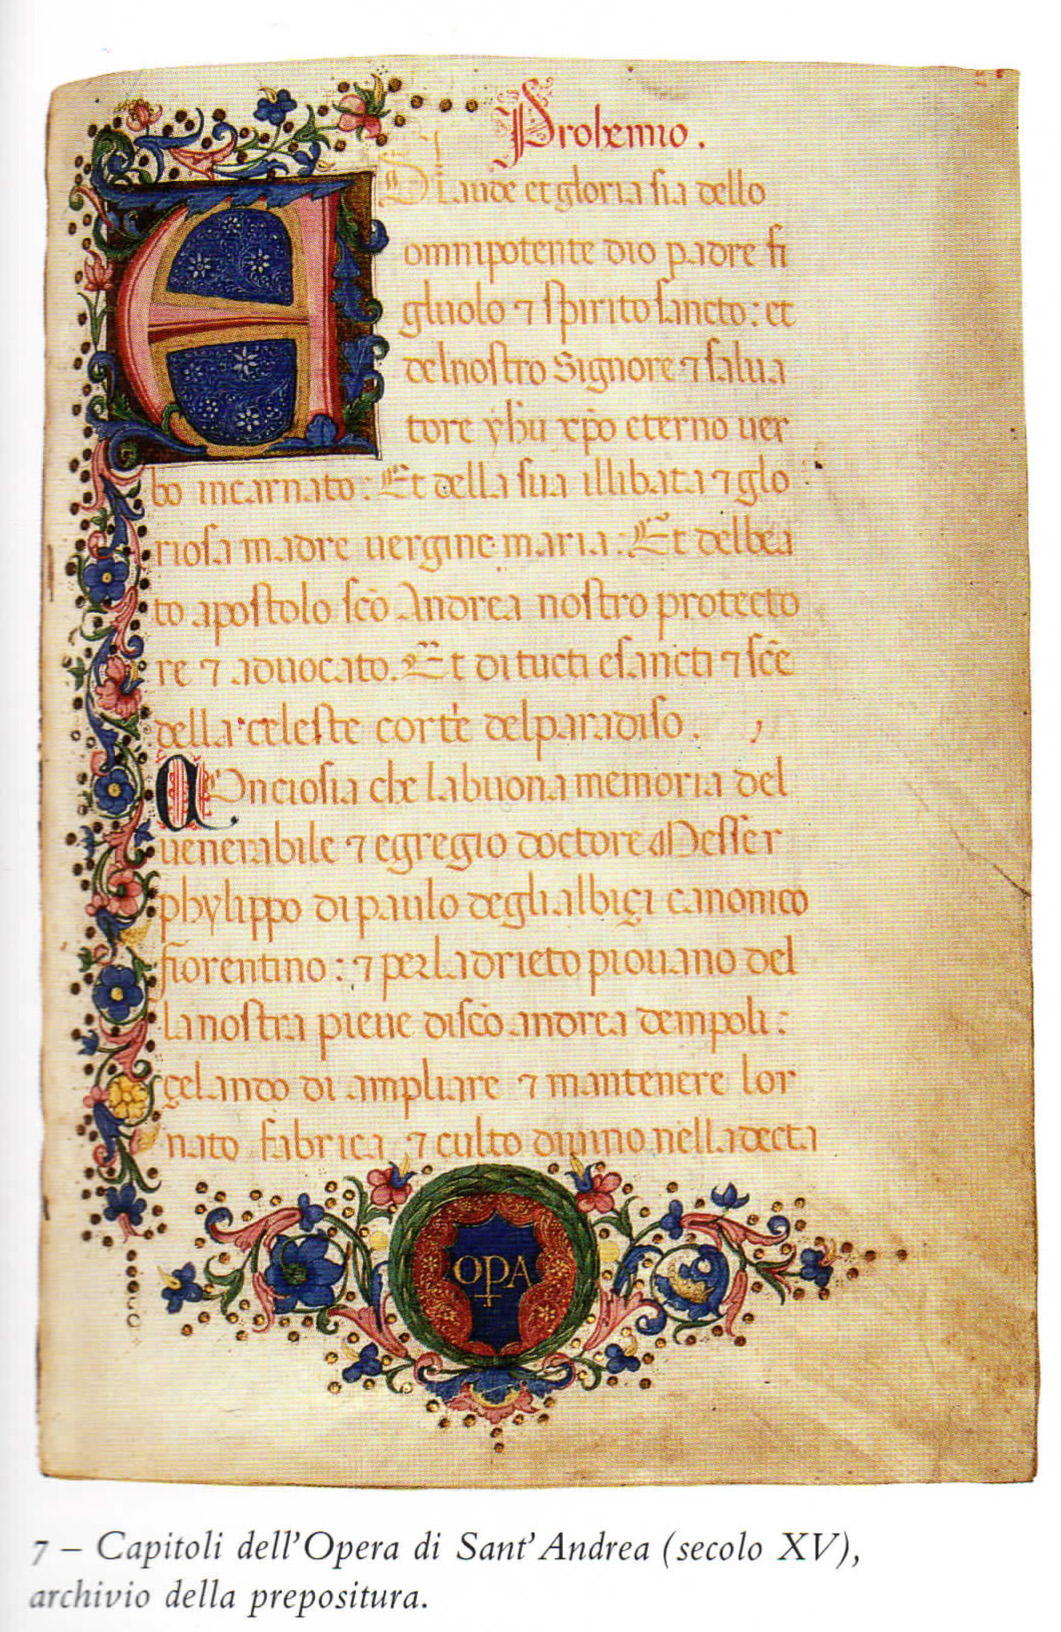 Prohemio.
A Laude et gloria sia dello
omnipotente dio padre fi
gluolo ⁊ spirito sancto: et
delnostro Signore ⁊ salua
tore yh̄u xp̄o eterno uer
bo incarnato: Et della sua illibata ⁊ glo
riosa madre uergine maria: Et delbea
to apostolo sc̄o Andrea nostro protecto
re ⁊ aduocato. Et di tucti esancti ⁊ sc̄e
della celeste corte delparadiso.
COnciosia che labuona memoria del
uenerabile ⁊ egregio doctore Messer
phylippo dipaulo deglialbiçi canonico
fiorentino: ⁊ perladrieto piouano del
lanostra pieue disc̄o andrea dempoli:
çelando di ampliare ⁊ mantenere lor
nato fabrica, ⁊ culto diuino nelladecta
OPA
7 – Capitoli dell'Opera di Sant'Andrea (secolo XV),
archivio della prepositura.